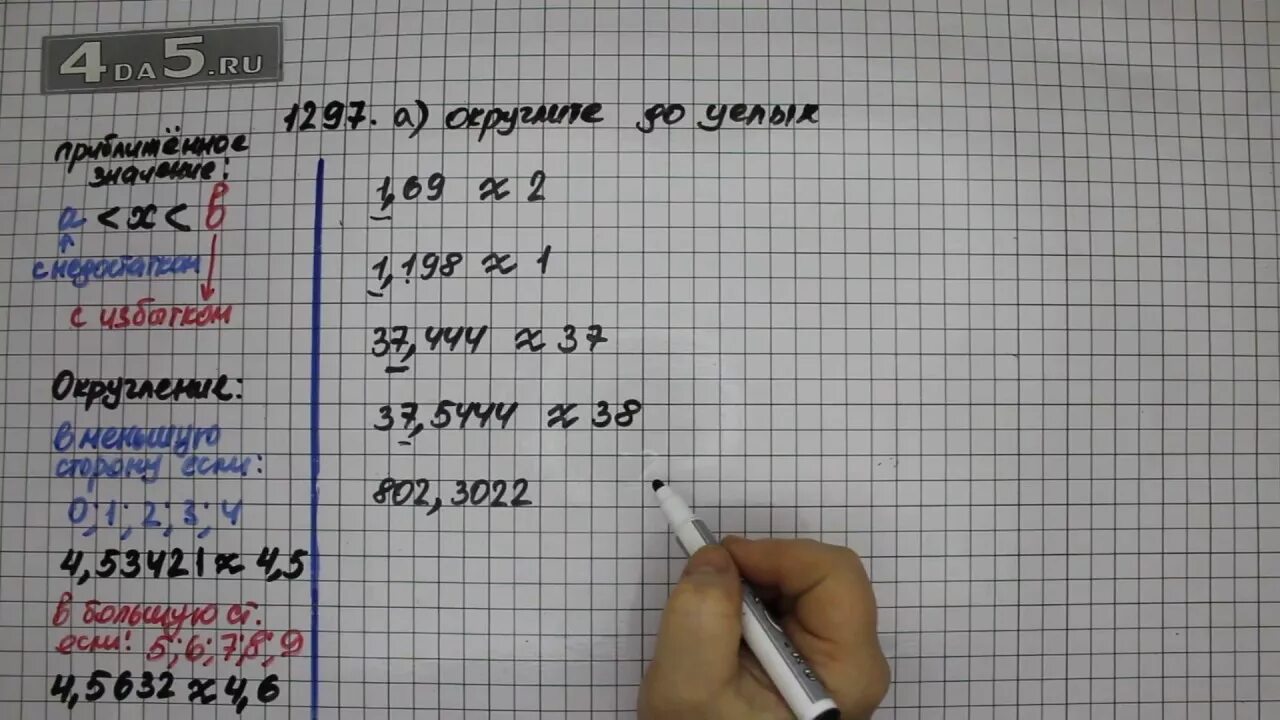 4DA5.RU
1297. а) округлите до целых
приближённое
значение:
а < х < в
с недостатком
с избытком
Округление:
в меньшую
сторону если:
0; 1; 2; 3; 4
4,53421 ≈ 4,5
в большую ст.
если: 5; 6; 7; 8; 9
4,5632 ≈ 4,6
1,69 ≈ 2
1,198 ≈ 1
37,444 ≈ 37
37,5444 ≈ 38
802,3022